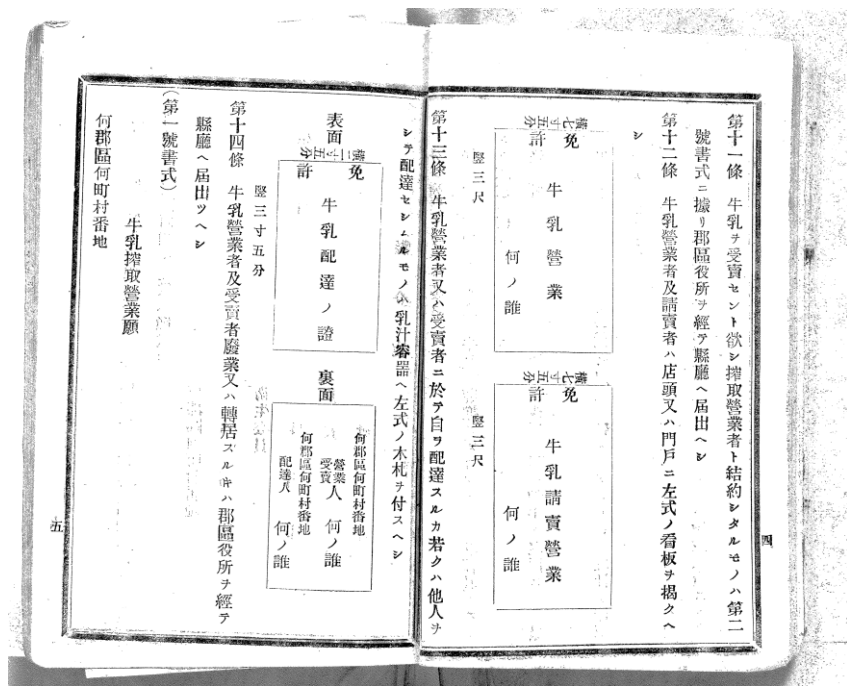 第十一條 牛乳ヲ受賣セント欲シ搾取營業者ト結約シタルモノハ第二
號書式ニ據リ郡區役所ヲ經テ縣廳ヘ届出ヘシ
第十二條 牛乳營業者及請賣者ハ店頭又ハ門戸ニ左式ノ看板ヲ揭クヘ
シ
橫七寸五分
免許
牛乳營業
何ノ誰
竪三尺
橫七寸五分
免許
牛乳請賣營業
何ノ誰
竪三尺
四
第十三條 牛乳營業者又ハ受賣者ニ於テ自ヲ配達スルカ若クハ他人ヲ
シテ配達セシムルモノハ乳汁容器ヘ左式ノ木札ヲ付スヘシ
表面
橫二寸五分
免許
牛乳配達ノ證
竪三寸五分
裏面
何郡區何町村番地
營業
受賣人 何ノ誰
何郡區何町村番地
配達人 何ノ誰
第十四條 牛乳營業者及受賣者廢業又ハ轉居スルキハ郡區役所ヲ經テ
縣廳ヘ届出ツヘシ
(第一號書式)
牛乳搾取營業願
何郡區何町村番地
五